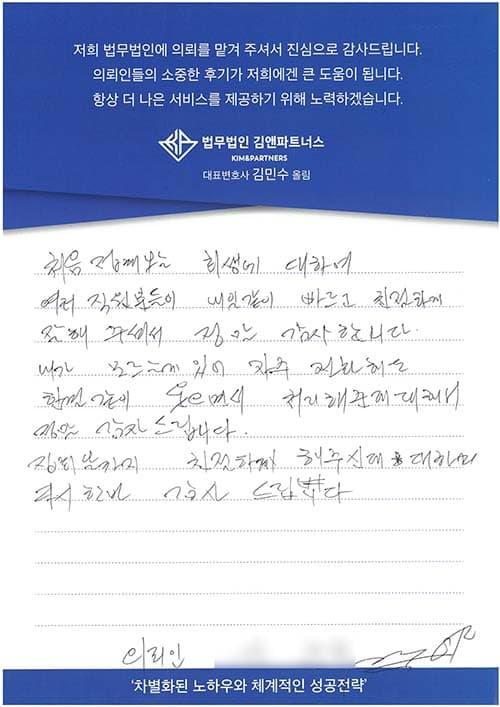 저희 법무법인에 의뢰를 맡겨 주셔서 진심으로 감사드립니다.
의뢰인들의 소중한 후기가 저희에겐 큰 도움이 됩니다.
항상 더 나은 서비스를 제공하기 위해 노력하겠습니다.
법무법인 김앤파트너스
KIM&PARTNERS
대표변호사 김민수 올림
처음 접해보는 회생에 대하여
여러 직원분들이 내일같이 빠르고 친절하게
잘해 주셔서 정말 감사합니다.
내가 모르는게 있어 자주 전화해도
한결같이 웃으며서 처리해준데 대해서
정말 감사드립니다.
친절하게 해주신데 대하여
다시한번 감사드립니다
의뢰인
'차별화된 노하우와 체계적인 성공전략'